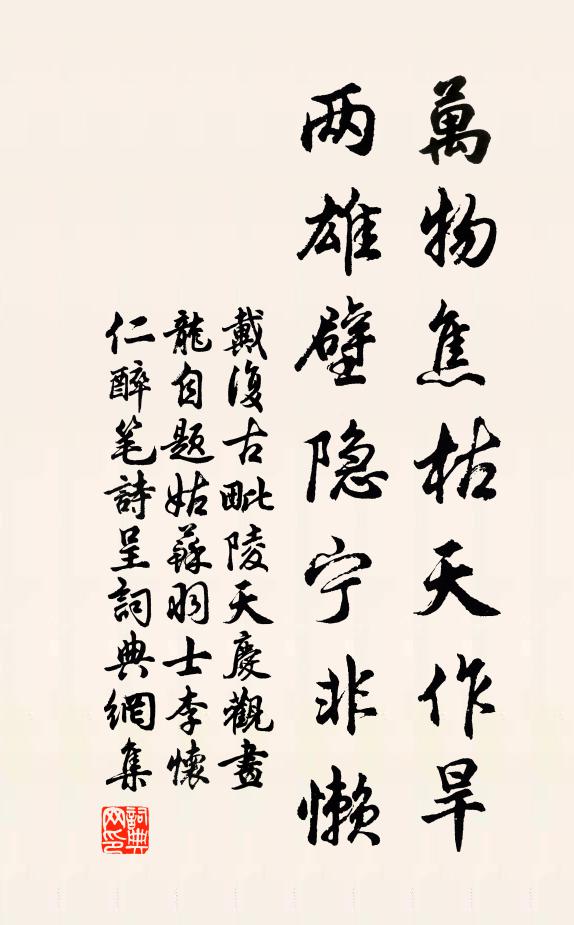 萬物焦枯天作旱
两雄壁隐宁非懒
戴復古毗陵天慶觀畫
龍自題姑蘇羽士李懷
仁醉笔詩呈詞典網集
詞典
网印